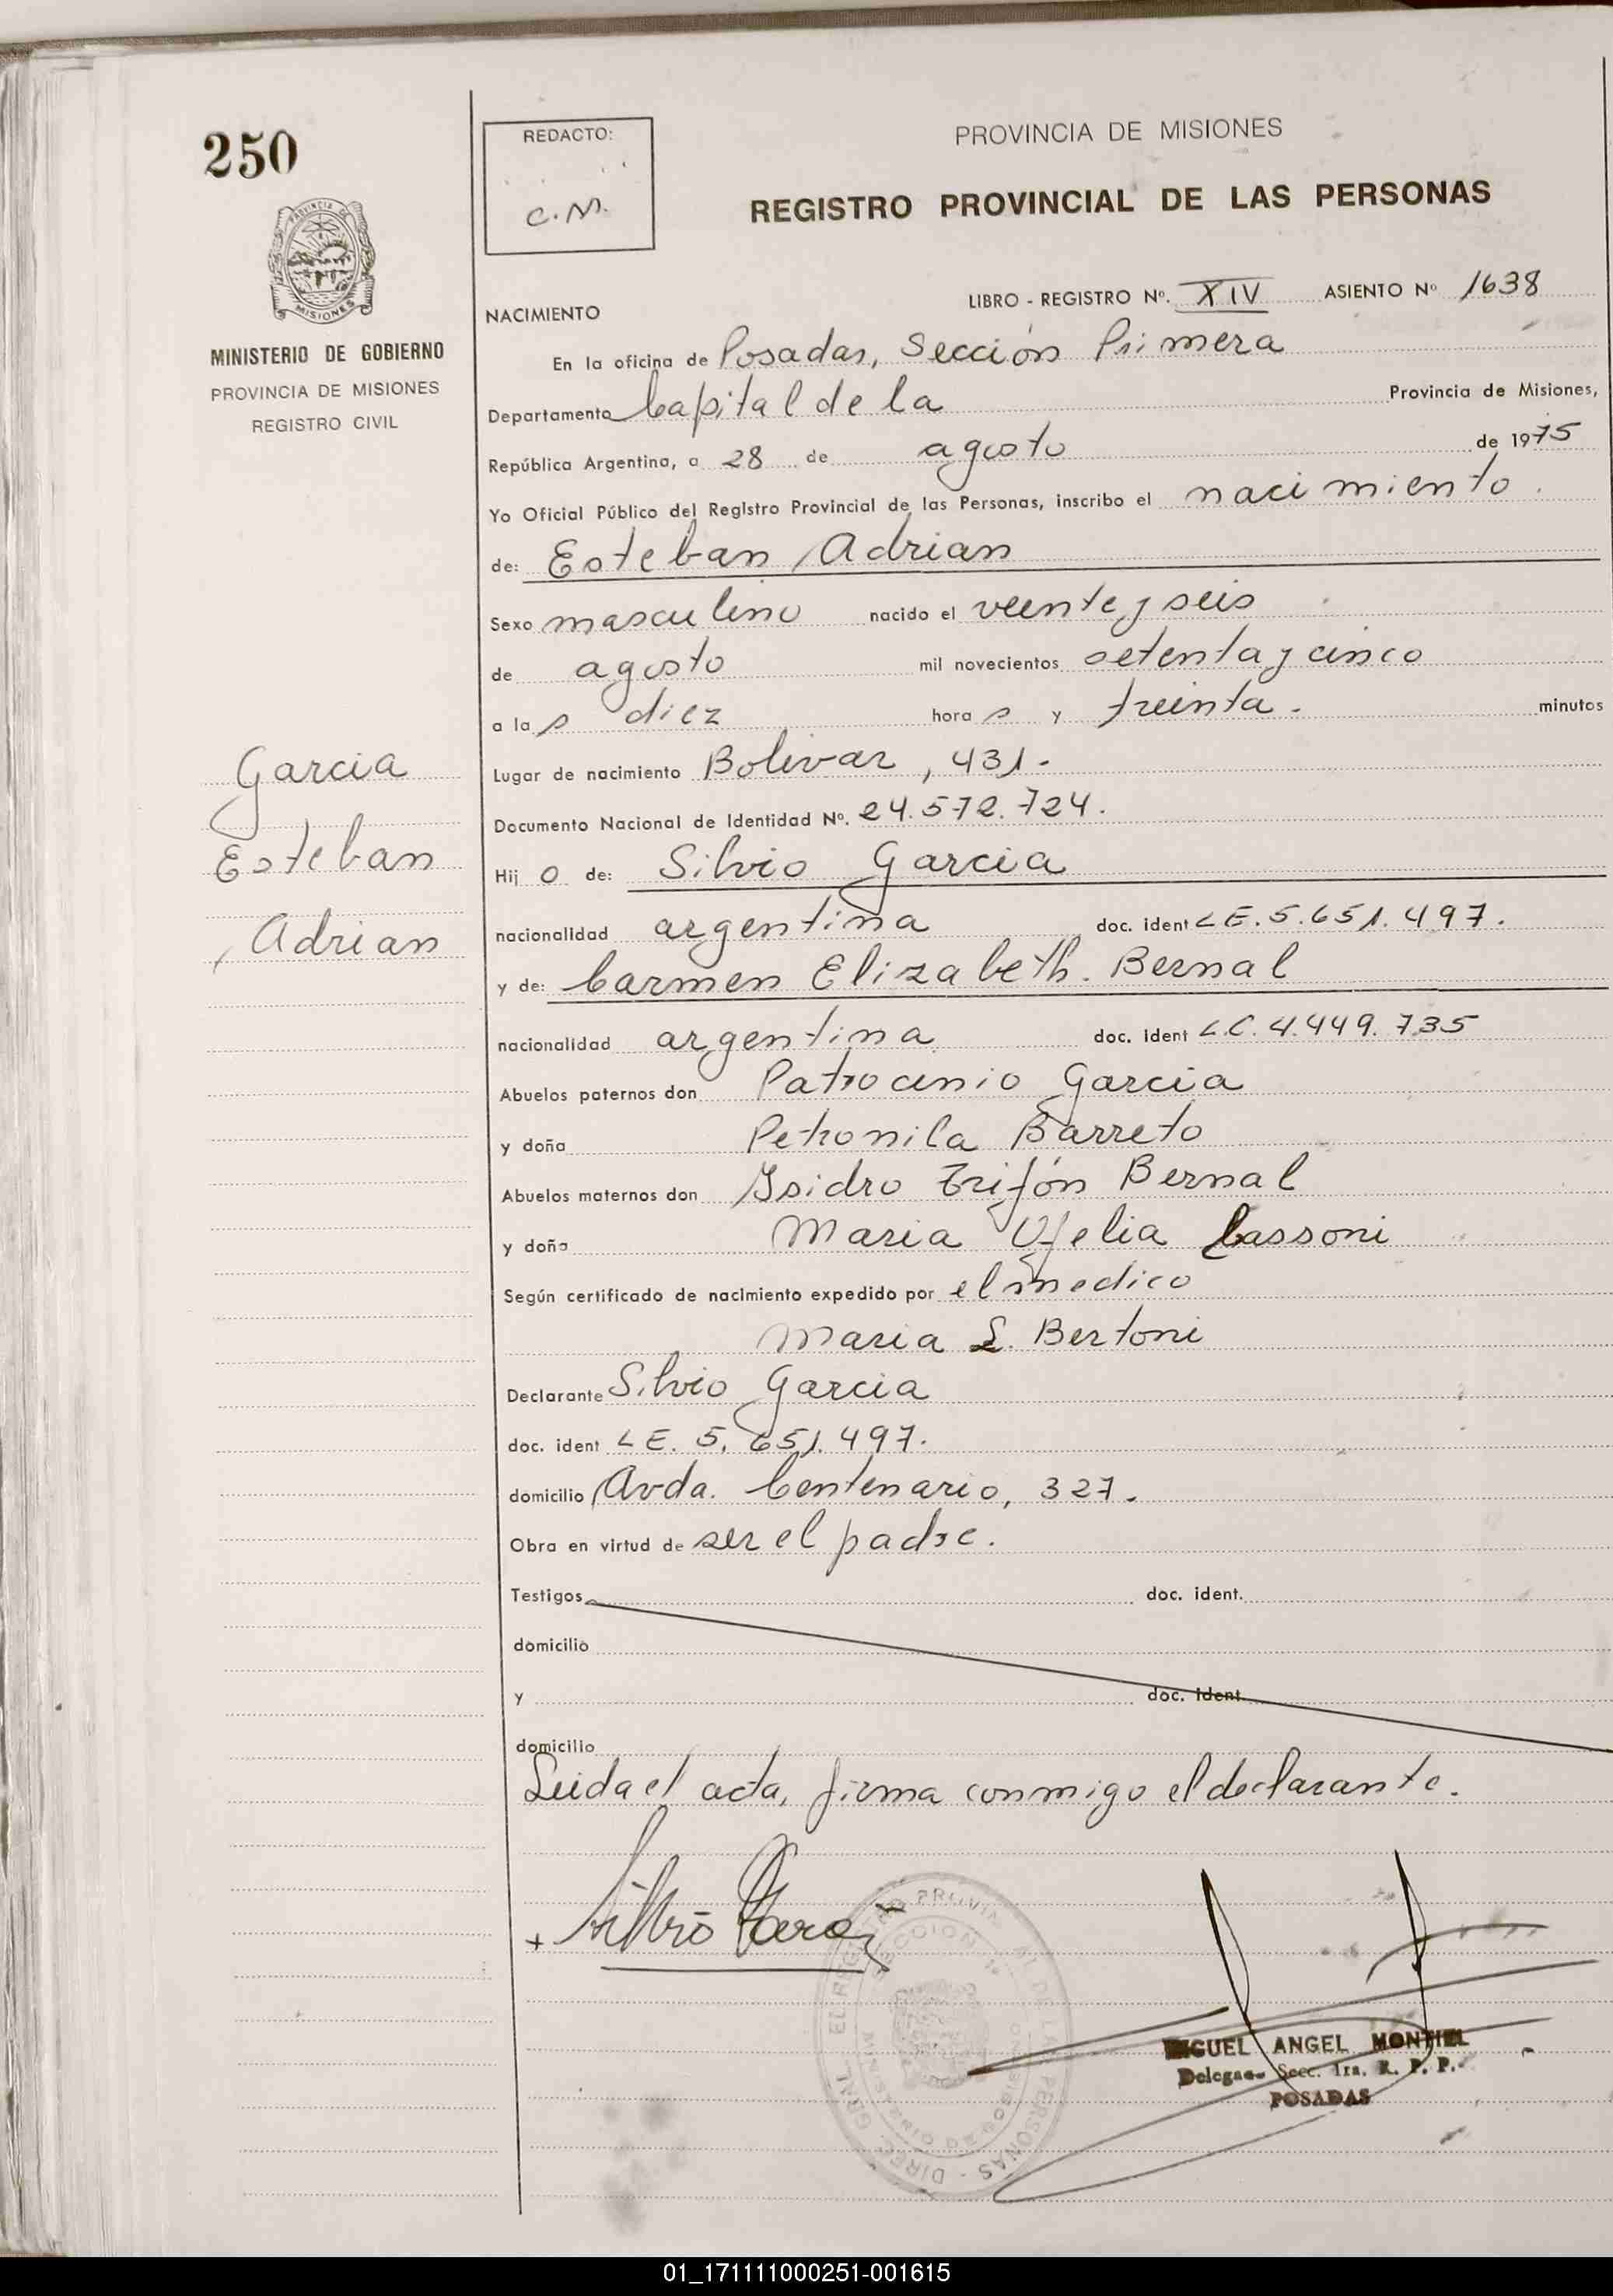 250
PROVINCIA DE MISIONES
MINISTERIO DE GOBIERNO
PROVINCIA DE MISIONES
REGISTRO CIVIL
Garcia
Esteban
Adrian
REDACTO:
C.M.
PROVINCIA DE MISIONES
REGISTRO PROVINCIAL DE LAS PERSONAS
LIBRO - REGISTRO Nº. XIV ASIENTO Nº 1638
NACIMIENTO
En la oficina de Posadas, Sección Primera
Departamento Capital de la Provincia de Misiones,
República Argentina, a 28 de agosto de 1975
Yo Oficial Público del Registro Provincial de las Personas, inscribo el nacimiento.
de: Esteban Adrian
Sexo masculino nacido el veinte y seis
de agosto mil novecientos setenta y cinco
a la s diez hora s y treinta. minutos
Lugar de nacimiento Bolivar, 431.
Documento Nacional de Identidad Nº. 24.572.724.
Hij o de: Silvio Garcia
nacionalidad argentina doc. ident LE. 5.651.497.
y de: Carmen Elizabeth. Bernal
nacionalidad argentina doc. ident L.C. 4.449.735
Abuelos paternos don Patrocinio Garcia
y doña Petronila Barreto
Abuelos maternos don Isidro Trifón Bernal
y doña Maria Ofelia Cassoni
Según certificado de nacimiento expedido por el medico
Maria L. Bertoni
Declarante Silvio Garcia
doc. ident LE. 5.651.497.
domicilio Avda. Centenario, 327.
Obra en virtud de ser el padre.
Testigos doc. ident.
domicilio
y doc. ident.
domicilio
Leida el acta, firma conmigo el declarante.
+ Silvio Garcia
MIGUEL ANGEL MONTIEL
Delegado Secc. 1ra. R. P. P.
POSADAS
01_171111000251-001615